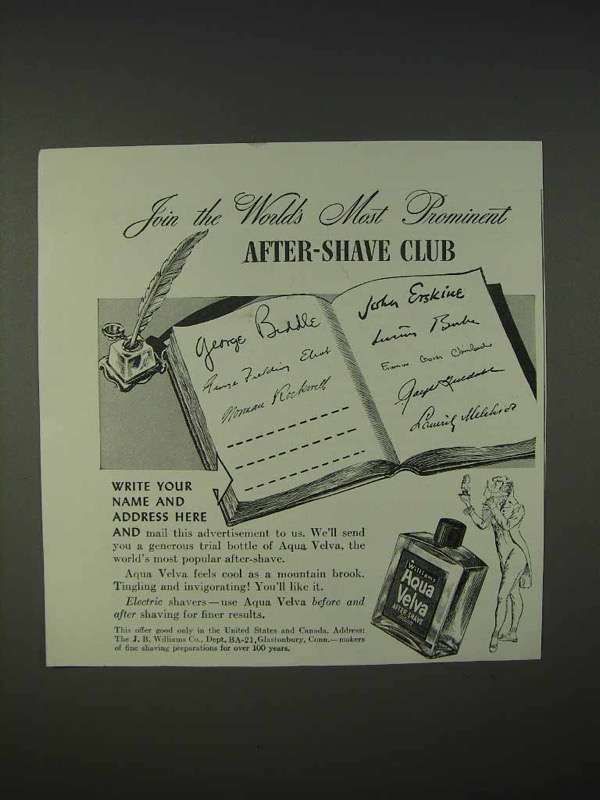 Join the World's Most Prominent
AFTER-SHAVE CLUB
George Biddle
George Fielding Eliot
Norman Rockwell
John Erskine
Lucius Beebe
Lauritz Melchior
WRITE YOUR
NAME AND
ADDRESS HERE
AND mail this advertisement to us. We'll send
you a generous trial bottle of Aqua Velva, the
world's most popular after-shave.
Aqua Velva feels cool as a mountain brook.
Tingling and invigorating! You'll like it.
Electric shavers—use Aqua Velva before and
after shaving for finer results.
This offer good only in the United States and Canada. Address:
The J. B. Williams Co., Dept. BA-21, Glastonbury, Conn.—makers
of fine shaving preparations for over 100 years.
Williams
Aqua
Velva
AFTER SHAVE